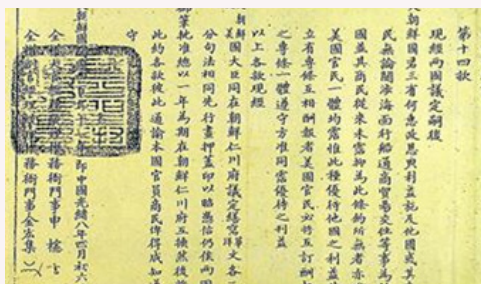 第十四款
現經兩國議定嗣後
朝鮮國君主有何惠政恩典利益施及他國或其
民無論關涉海面行船通商貿易交往等事為
國並其商民從來未霑抑為此條約所無者亦
美國官民一體均霑惟此種優待他國之利益
立有專條互相酬報者美國官民必將互訂酬
之專條一體遵守方准同霑優待之利益
以上各款現經
朝鮮美國大臣同在朝鮮仁川府議定繕寫華洋文各三
分句法相同先行畫押蓋印以昭憑信仍俟兩國
御筆批准總以一年為期在朝鮮仁川府互換然後
此約各款彼此通諭本國官員商民俾得咸知
守
朝鮮國 年即中國光緒八年四月初六
全權 機務衙門事申櫶
全權 機務衙門事金宏集